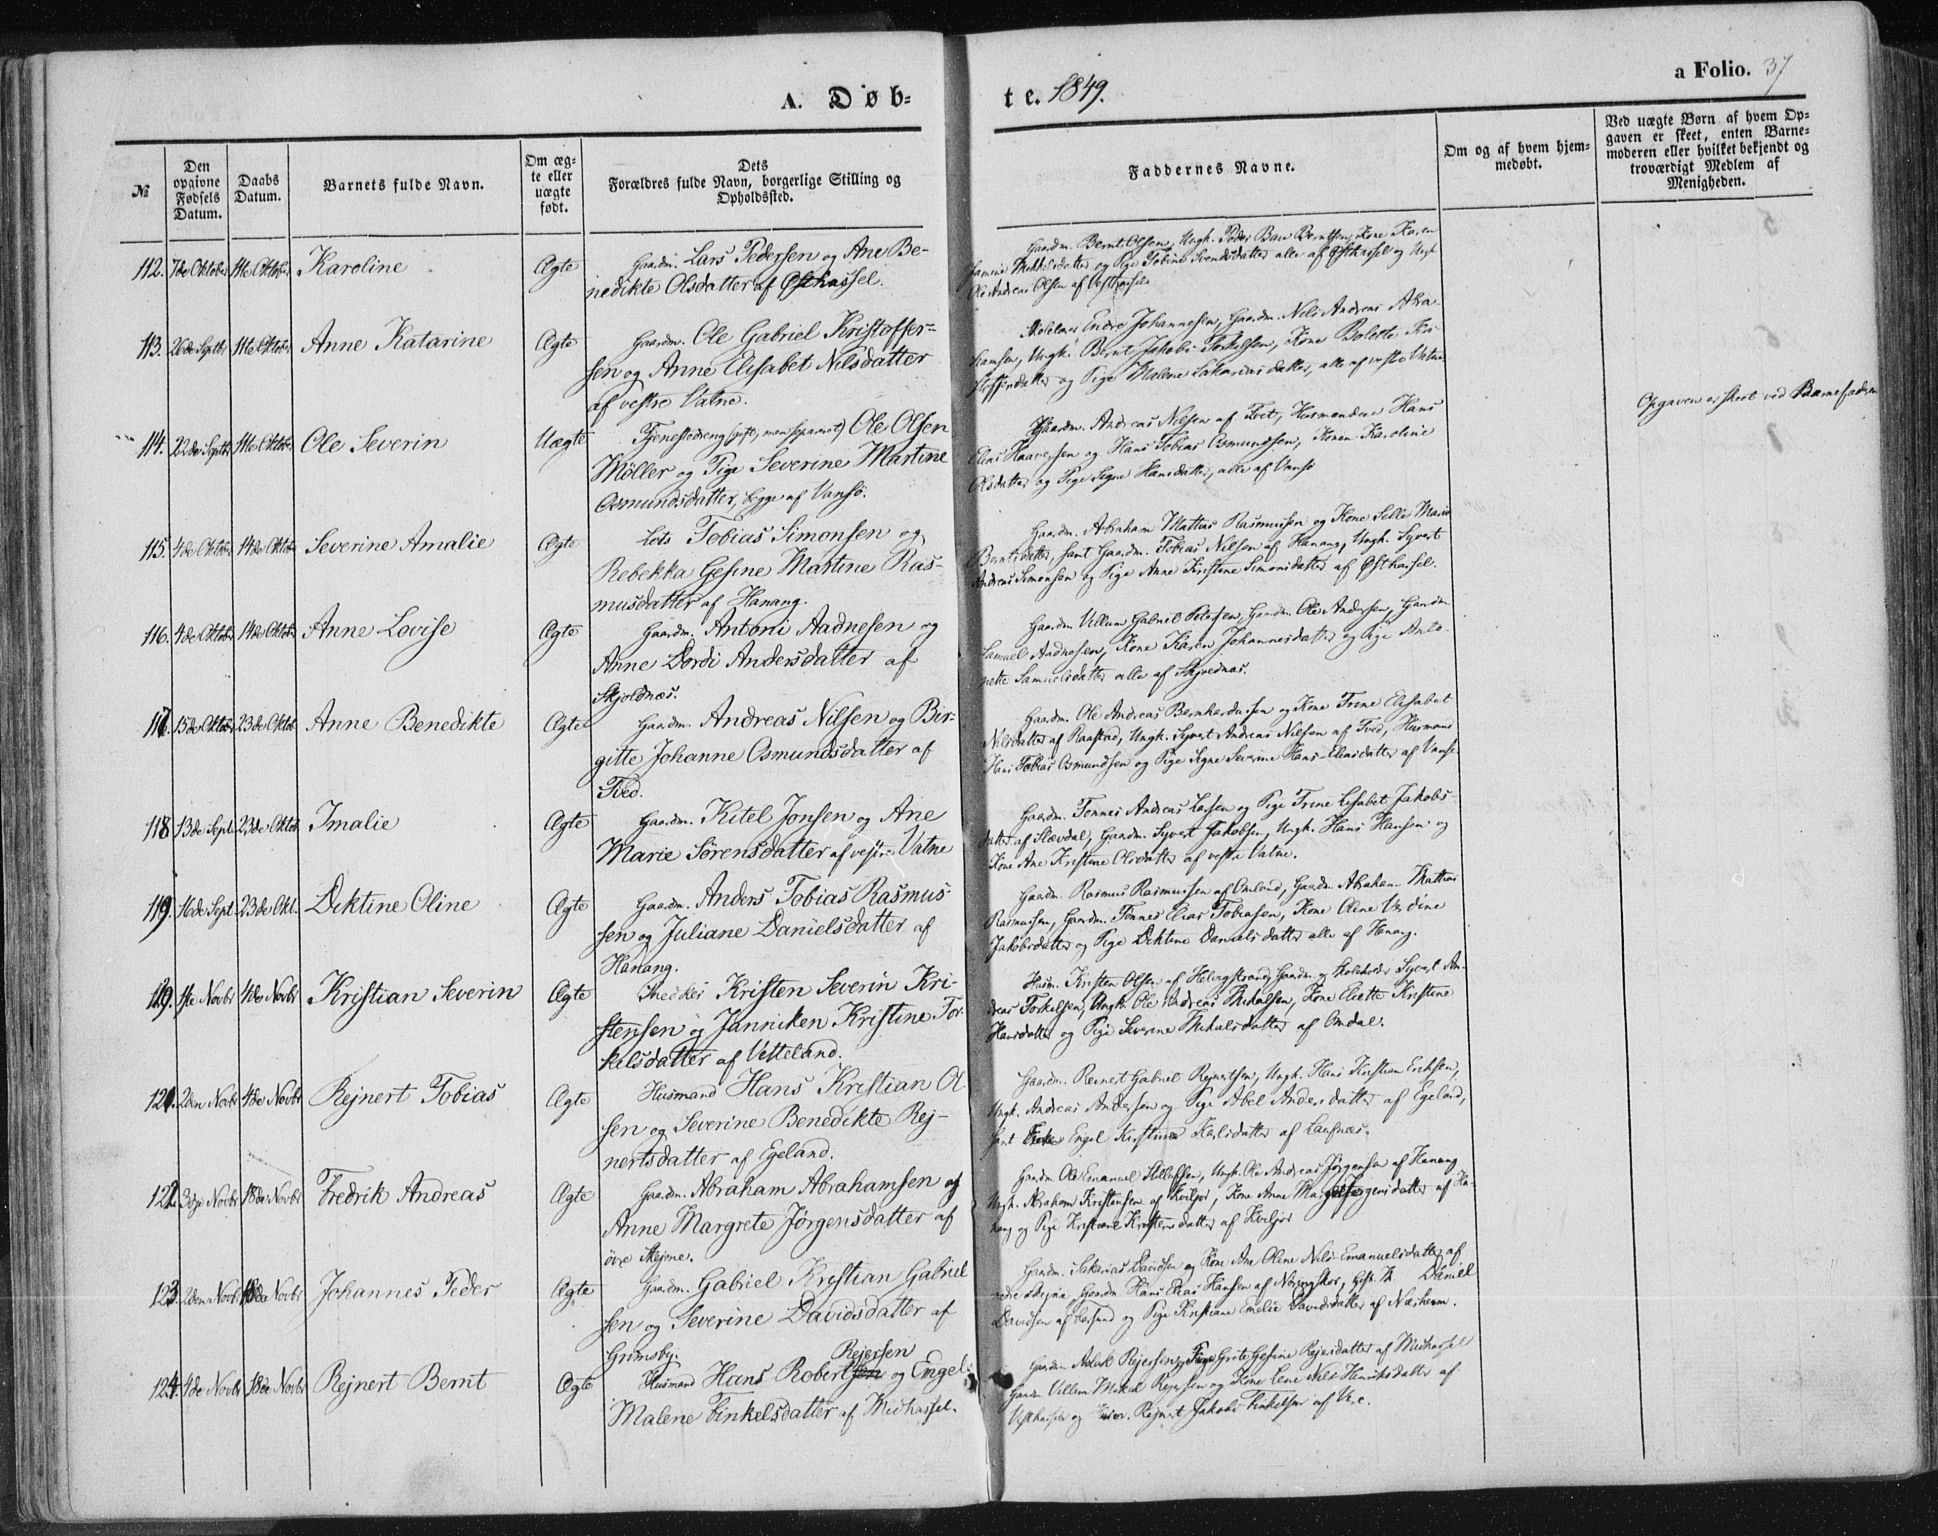 A. Døb-
te. 1849.
a Folio. 37
№
Den opgivne Fødsels Datum.
Daabs Datum.
Barnets fulde Navn.
Om ægte eller uægte født.
Dets Forældres fulde Navn, borgerlige Stilling og Opholdssted.
Faddernes Navne.
Om og af hvem hjemmedøbt.
Ved uægte Børn af hvem Opgaven er skeet, enten Barnemoderen eller hvilket bekjendt og troværdigt Medlem af Menigheden.
112. 7de Oktober 11te Oktober Karoline Ægte Gaardm. Lars Pedersen og Ane Be-
nedikte Olsdatter af Østhassel.
Gaardm. Bernt Olsen, Ungk. Peder Berntsen, Kone Karen
Mikkelsdatter og Pige Tobine Svendsdatter alle af Østhassel og Ungk.
Ole Andreas Olsen af Vesthassel
113. 26de Septbr 11te Oktober Anne Katarine Ægte Gaardm. Ole Gabriel Kristoffer-
sen og Anne Elisabet Nilsdatter
af vestre Vatne.
Endre Johannesen, Gaardm. Nils Andreas Abra-
hamsen, Ungk. Bernt Jakobs Torkelsen, Kone Bolette Kri-
stoffersdatter og Pige Malene Sakariasdatter, alle af vestre Vatne
114. 22de Septbr 11te Oktober Ole Severin Uægte Tjenestedreng (gift, men separeret) Ole Olsen
Møller og Pige Severine Martine
Osmundsdatter, begge af Vansö.
Gaardm. Andreas Nilsen af Tvet, Husmændene Hans
Elias Haaversen og Hans Tobias Osmundsen, Konen Karoline
Olsdatter og Pige Signe Hansdatter, alle af Vansö
Opgaven er skeet ved Barnefaderen
115. 4de Oktober 14de Oktober Severine Amalie Ægte Lods Tobias Simonsen og
Rebekka Gesine Martine Ras-
musdatter af Hanang.
Gaardm. Abraham Mattias Rasmussen og Kone Selle Marie
Berntsdatter, samt Gaardm. Tobias Nilsen af Hanang, Ungk. Syvert
Andreas Simonsen og Pige Anne Kristine Simonsdatter af Østhassel.
116. 4de Oktober 14de Oktober Anne Lovise Ægte Gaardm. Antoni Aadnesen og
Anne Dordi Andersdatter af
Skjoldnæs.
Gaardm. Villum Gabriel Petersen, Gaardm. Ole Andersen, Gaardm
Samuel Aadnesen, Kone Karen Johannesdatter og Pige Anto-
nette Samuelsdatter alle af Skjoldnæs.
117. 15de Oktober 23de Oktob. Anne Benedikte Ægte Gaardm. Andreas Nilsen og Bir-
gitte Johanne Osmundsdatter af
Tved.
Gaardm. Ole Andreas Bernhardussen og Kone Trine Elisabet
Nilsdatter af Raastad, Ungk. Syvert Andreas Nilsen af Tved, Husmand
Hans Tobias Osmundsen og Pige Signe Severine Hans-Eliasdatter af Vansö
118 13de Sept. 23de Oktob. Imalie Ægte Gaardm. Kitel Jonsen og Ane
Marie Sörensdatter af vestre Vatne
Gaardm. Tønnes Andreas Larsen og Pige Trine Lisabet Jakobs-
datter af Slævdal, Gaardm. Syvert Jakobsen, Ungk. Hans Hansen og
Kone Ane Kristine Olsdatter af vestre Vatne.
119. 16de Sept. 23de Okt. Diktine Oline Ægte Gaardm. Anders Tobias Rasmus-
sen og Juliane Danielsdatter af
Hanang.
Gaardm. Rasmus Rasmussen af Omland, Gaardm. Abraham Mattias
Rasmussen, Gaardm. Tønnes Elias Tobiasen, Kone Oline Verdine
Jakobsdatter og Pige Diktine Danielsdatter alle af Hanang.
119. 1ste Novbr 4de Novbr Kristian Severin Ægte Snedker Kristen Severin Kri-
stensen og Janniken Kristine Tor-
kelsdatter af Vetteland.
Husm. Kristen Olsen af Helvigstrand, Gaardm. og Skoleholder Syvert An-
dreas Torkelsen, Ungk. Ole Andreas Mikalsen, Kone Eliette Kristine
Hansdatter og Pige Severine Mikalsdatter af Omdal.
121. 2den Novbr 4de Novbr Rejnert Tobias Ægte Husmand Hans Kristian Ol-
sen og Severine Benedikte Rej-
nertsdatter af Egeland.
Gaardm. Reinert Gabriel Rejnertsen, Ungk. Hans Kristian Eriksen,
Ungk. Andreas Andersen og Pige Abel Andersdatter af Egeland,
samt Enke Engel Kristine Karlsdatter af Launæs.
122. 3die Novbr 18de Novbr Fredrik Andreas Ægte Gaardm. Abraham Abrahamsen og
Anne Margrete Jørgensdatter af
övre Skejme.
Gaardm. Ole Emanuel, Ungk. Ole Andreas Jørgensen af Hanang
Ungk. Abraham Kristensen af Kviljo, Kone Anne Margrete Jørgensdatter af Ha-
nang og Pige Kristiane Kristensdatter af Kviljo
123. 2den Novbr 18de Novbr Johannes Peder Ægte Gaardm. Gabriel Kristian Gabriel
sen og Severine Davidsdatter af
Grimsby.
Gaardm. Sakarias Davidsen og Kone Ane Oline Nils-Emanuelsdatter af
nedre Skejme, Gaardm. Hans Elias Hansen af, Daniel
Davidsen af og Pige Kristiane Emelie Davidsdatter af Næsheim.
124. 4de Novbr 18de Novbr Rejnert Bernt Ægte Husmand Hans Robertsen Rejersen og Engel
Malene Finkelsdatter af Midhassel.
Gaardm. Aslak Rejersen, Pige Grete Gesine Rejersdatter af Midhassel
Gaardm. Villem Mikal Rejersen og Kone Lene Nils-Henriksdatter af
Vesthassel og Rejnert Jakob Finkelsen af Ore.